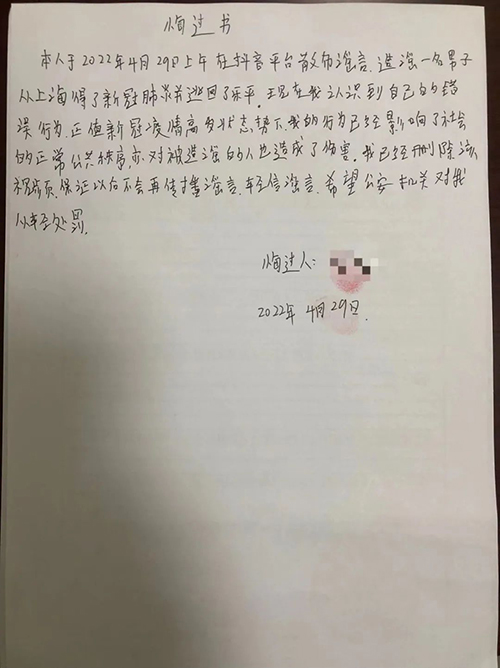 悔过书
本人于2022年4月29日上午在抖音平台散布谣言,造谣一名男子
从上海得了新冠肺炎并逃回了乐平。现在我认识到自己的错
误行为,正值新冠疫情高发状态势下,我的行为已经影响了社会
的正常公共秩序亦对被造谣的人也造成了伤害。我已经删除该
视频,保证以后不会再传播谣言,轻信谣言,希望公安机关对我
从轻处罚。
悔过人:
2022年4月29日.